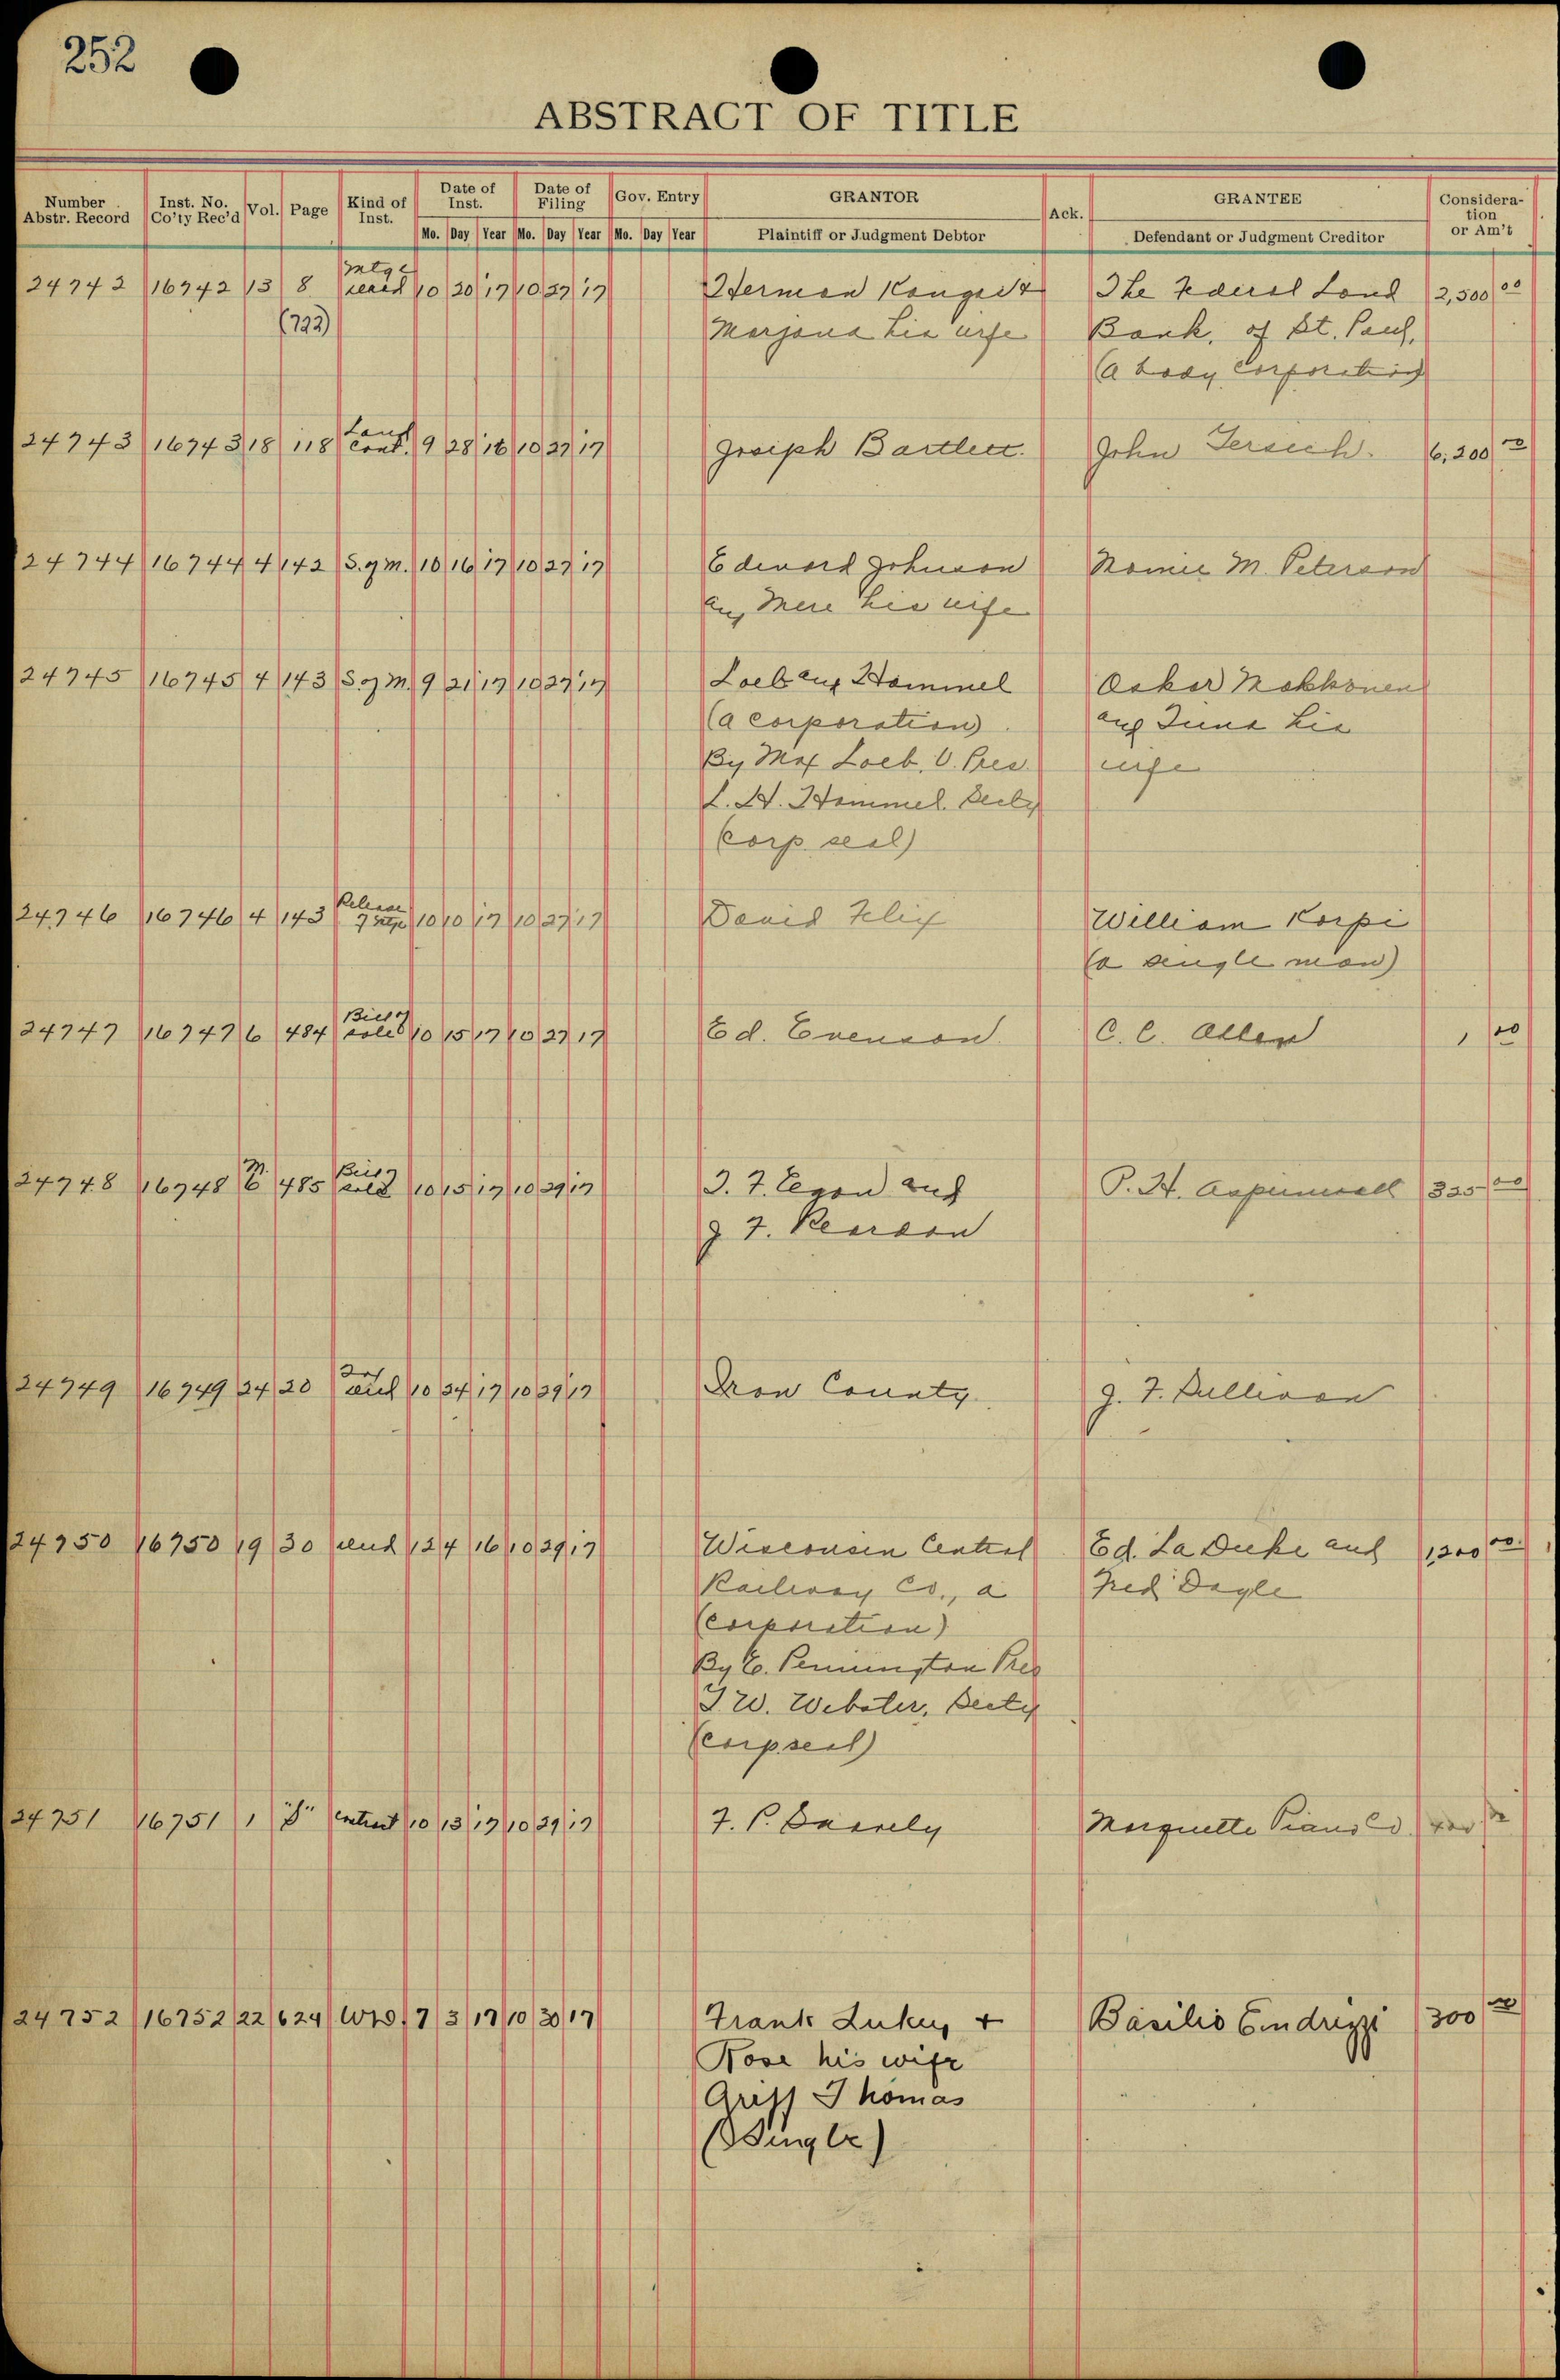 252
ABSTRACT OF TITLE
Number Abstr. Record Inst. No. Co'ty Rec'd Vol. Page Kind of Inst. Date of Inst. Date of Filing Gov. Entry GRANTOR Ack. GRANTEE Considera-tion or Am't
Mo. Day Year Mo. Day Year Mo. Day Year Plaintiff or Judgment Debtor Defendant or Judgment Creditor
24742 16742 13 8 Mtge 10 20 17 10 27 17 Herman The Federal Land 2,500 00
(722) his wife Bank, of St. Paul,
(a body corporation)
24743 16743 18 118 Land Cont. 9 28 16 10 27 17 Joseph Bartlett. John 6,200 00
24744 16744 4 142 S. of M. 10 16 17 10 27 17 Edward Johnson M. Peterson
his wife
24745 16745 4 143 S of M. 9 21 17 10 27 17 Loeb and Hammel Oskar
(a corporation) and his
By Max Loeb, V. Pres. wife
L. H. Hammel. Secty
(corp. seal)
24746 16746 4 143 Release of Mtge 10 10 17 10 27 17 David William Korpi
(a single man)
24747 16747 6 484 Bill of sale 10 15 17 10 27 17 Ed. Evenson C. C. Allen 1 00
24748 16748 M. 6 485 Bill of sale 10 15 17 10 29 17 Egan and P. H. Aspinwall 325 00
J. F. Reardon
24749 16749 24 20 10 24 17 10 29 17 Iron County J. F. Sullivan
24750 16750 19 30 12 4 16 10 29 17 Wisconsin Central Ed. La Duke and 1,200 00
Railway Co., a Fred Dagle
(corporation)
By E. Pennington Pres
W. Webster, Secty
(corp seal)
24751 16751 1 Contract 10 13 17 10 29 17 F. P. Marquette Piano Co.
24752 16752 22 624 WD. 7 3 17 10 30 17 Frank + Basilio Endrizzi 300 00
Rose his wife
Griff Thomas
(Single)